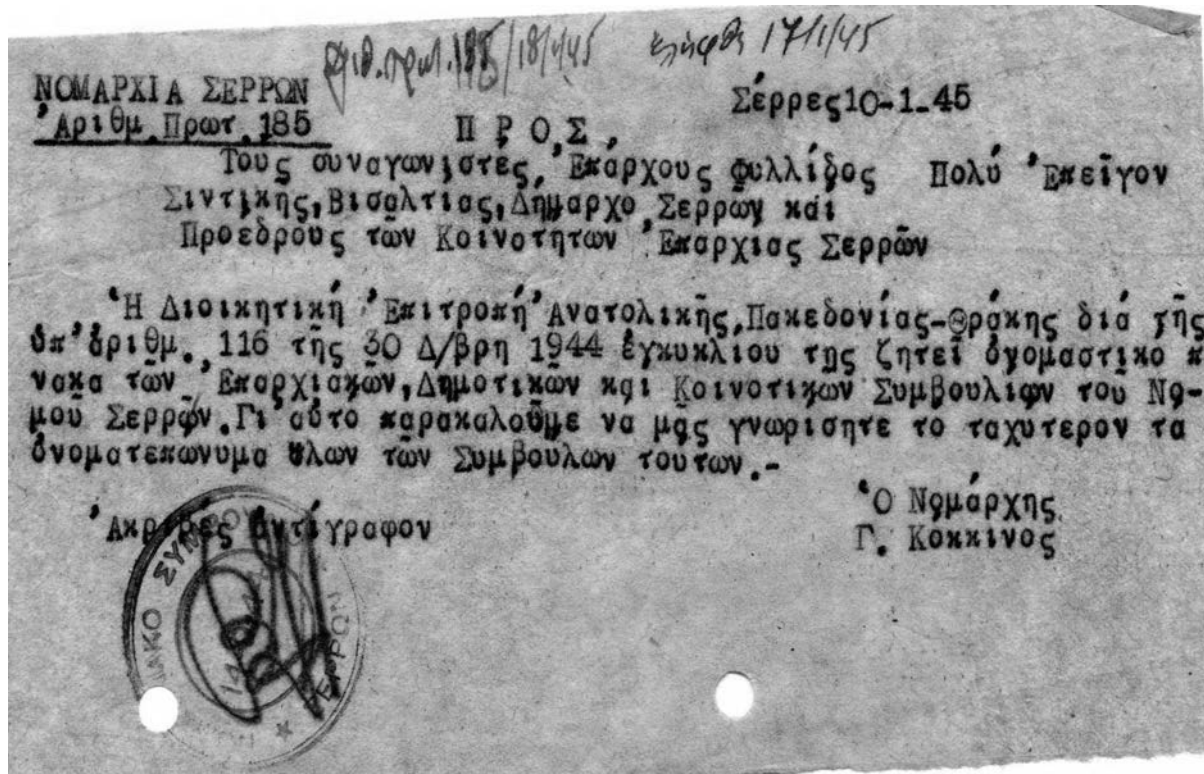 18/1/45 17/1/45
ΝΟΜΑΡΧΙΑ ΣΕΡΡΩΝ
Σέρρες10-1-45
'Αριθμ.Πρωτ.185
Π Ρ Ο Σ,
Τους συναγωνιστές, 'Επάρχους Φυλλίδος Πολύ 'Επεῖγον
Σιντικῆς,Βισαλτίας,Δήμαρχο Σερρῶν καί
Προέδρους τῶν Κοινοτήτων 'Επαρχίας Σερρῶν
'Η Διοικητική 'Επιτροπή 'Ανατολικῆς,Πακεδονίας-Θράκης διά τῆς
ὑπ'ἀριθμ. 116 τῆς 30 Δ/βρη 1944 ἐγκυκλίου της ζητεῖ ὀνομαστικο π
νακα τῶν 'Επαρχιακῶν,Δημοτικῶν και Κοινοτικων Συμβουλίων τοῦ Νο-
μοῦ Σερρῶν.Γι'αὐτο παρακαλοῦμε να μᾶς γνωρισητε το ταχυτερον τα
ὀνοματεπώνυμα ὅλων τῶν Συμβουλων τουτων.-
'Ο Νομάρχης
'Ακριβές ἀντίγραφον
Γ. Κοκκινος